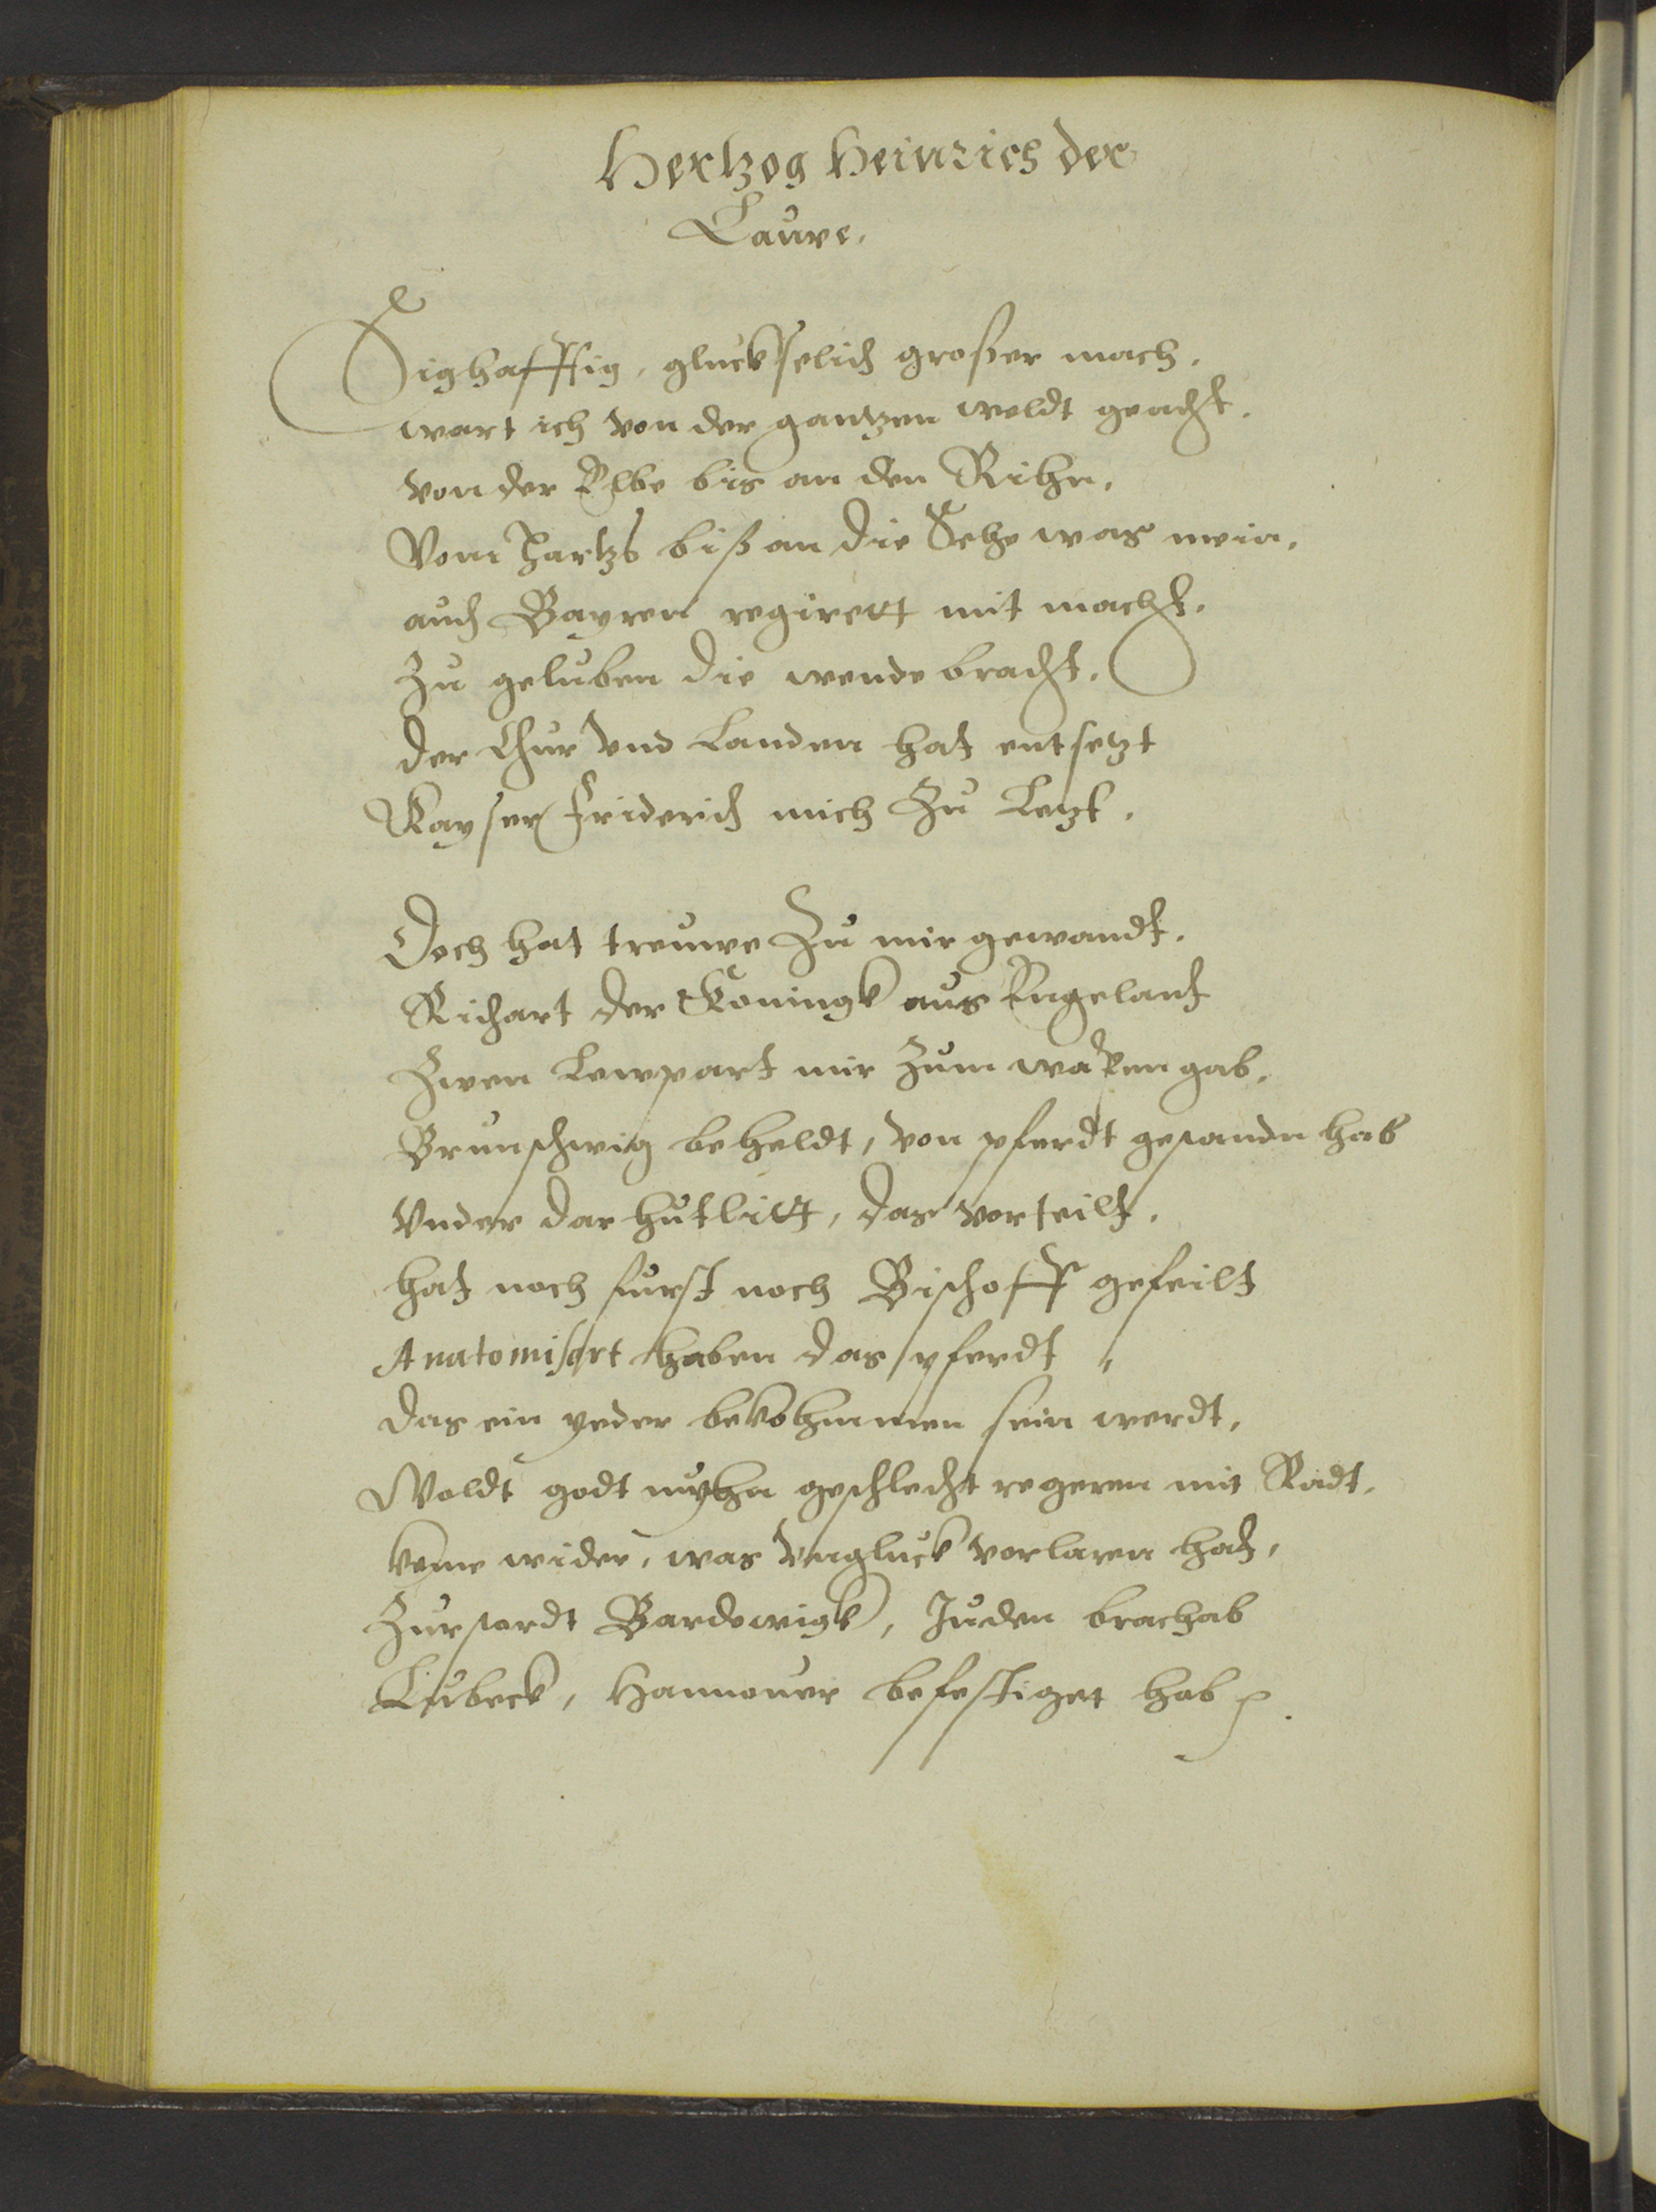 Hertzog Heinrich der
Lauwe.
Sighafftig, gluckselich großer mach,
wart ich von der gantzen weldt geacht.
von der Elbe bis an den Rihn,
Vom Hartzs biß an die Sehe was mein,
auch Bayren regirett mit macht.
Zu geluben die wende bracht.
der Chur vnd Landen hat entsetzt
Kayser Friderich mich Zu Letzt.
Doch hat treuwe Zu mir gewandt.
Richart der Koningk aus Engelant
Zwen Lewpart mir Zum wapen gab,
Brunschwig beheldt, von pferdt gesandn hab
Vnder dar hutlitt, das vorteilt.
hat noch furst noch Bischoff gefeilt
Anatomisert haben das pferdt,
das ein yeder bekohmmen sein werdt,
Woldt godt myhn geschlecht regeren mit Radt.
keme wider, was vngluck vorlaren hat,
Zurstordt Bardewigk, Juden brachab
Lubeck, Hannouer befestiget hab